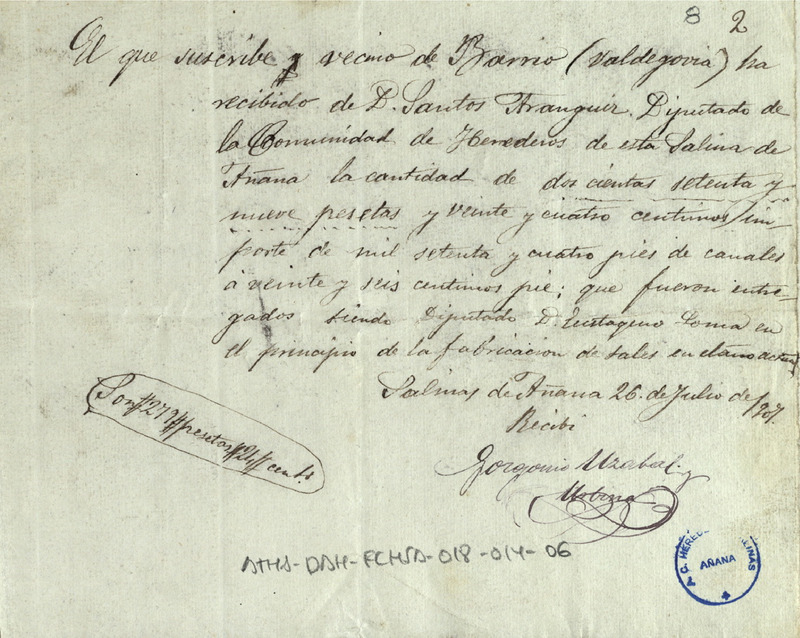 8 2
El que suscribe y vecino de Barrio (Valdegovia) ha
recibido de D. Santos Aranguiz. Diputado de
la Comunidad de Herederos de esta Salina de
Añana la cantidad de dos cientas setenta y
nueve pesetas y veinte y cuatro centimos im-
porte de mil setenta y cuatro pies de canales
á veinte y seis centimos pie; que fueron entre-
gados siendo Diputado D. Eustaquio Loma en
el principio de la fabricacion de sales en el año actual
Salinas de Añana 26 de Julio de 1907.
Recibi
Son #279# pesetas #24# cents.
Gorgonio Uzabal y
Urbina
ATHA-DAH-FCHSA-018-014-06
AÑANA